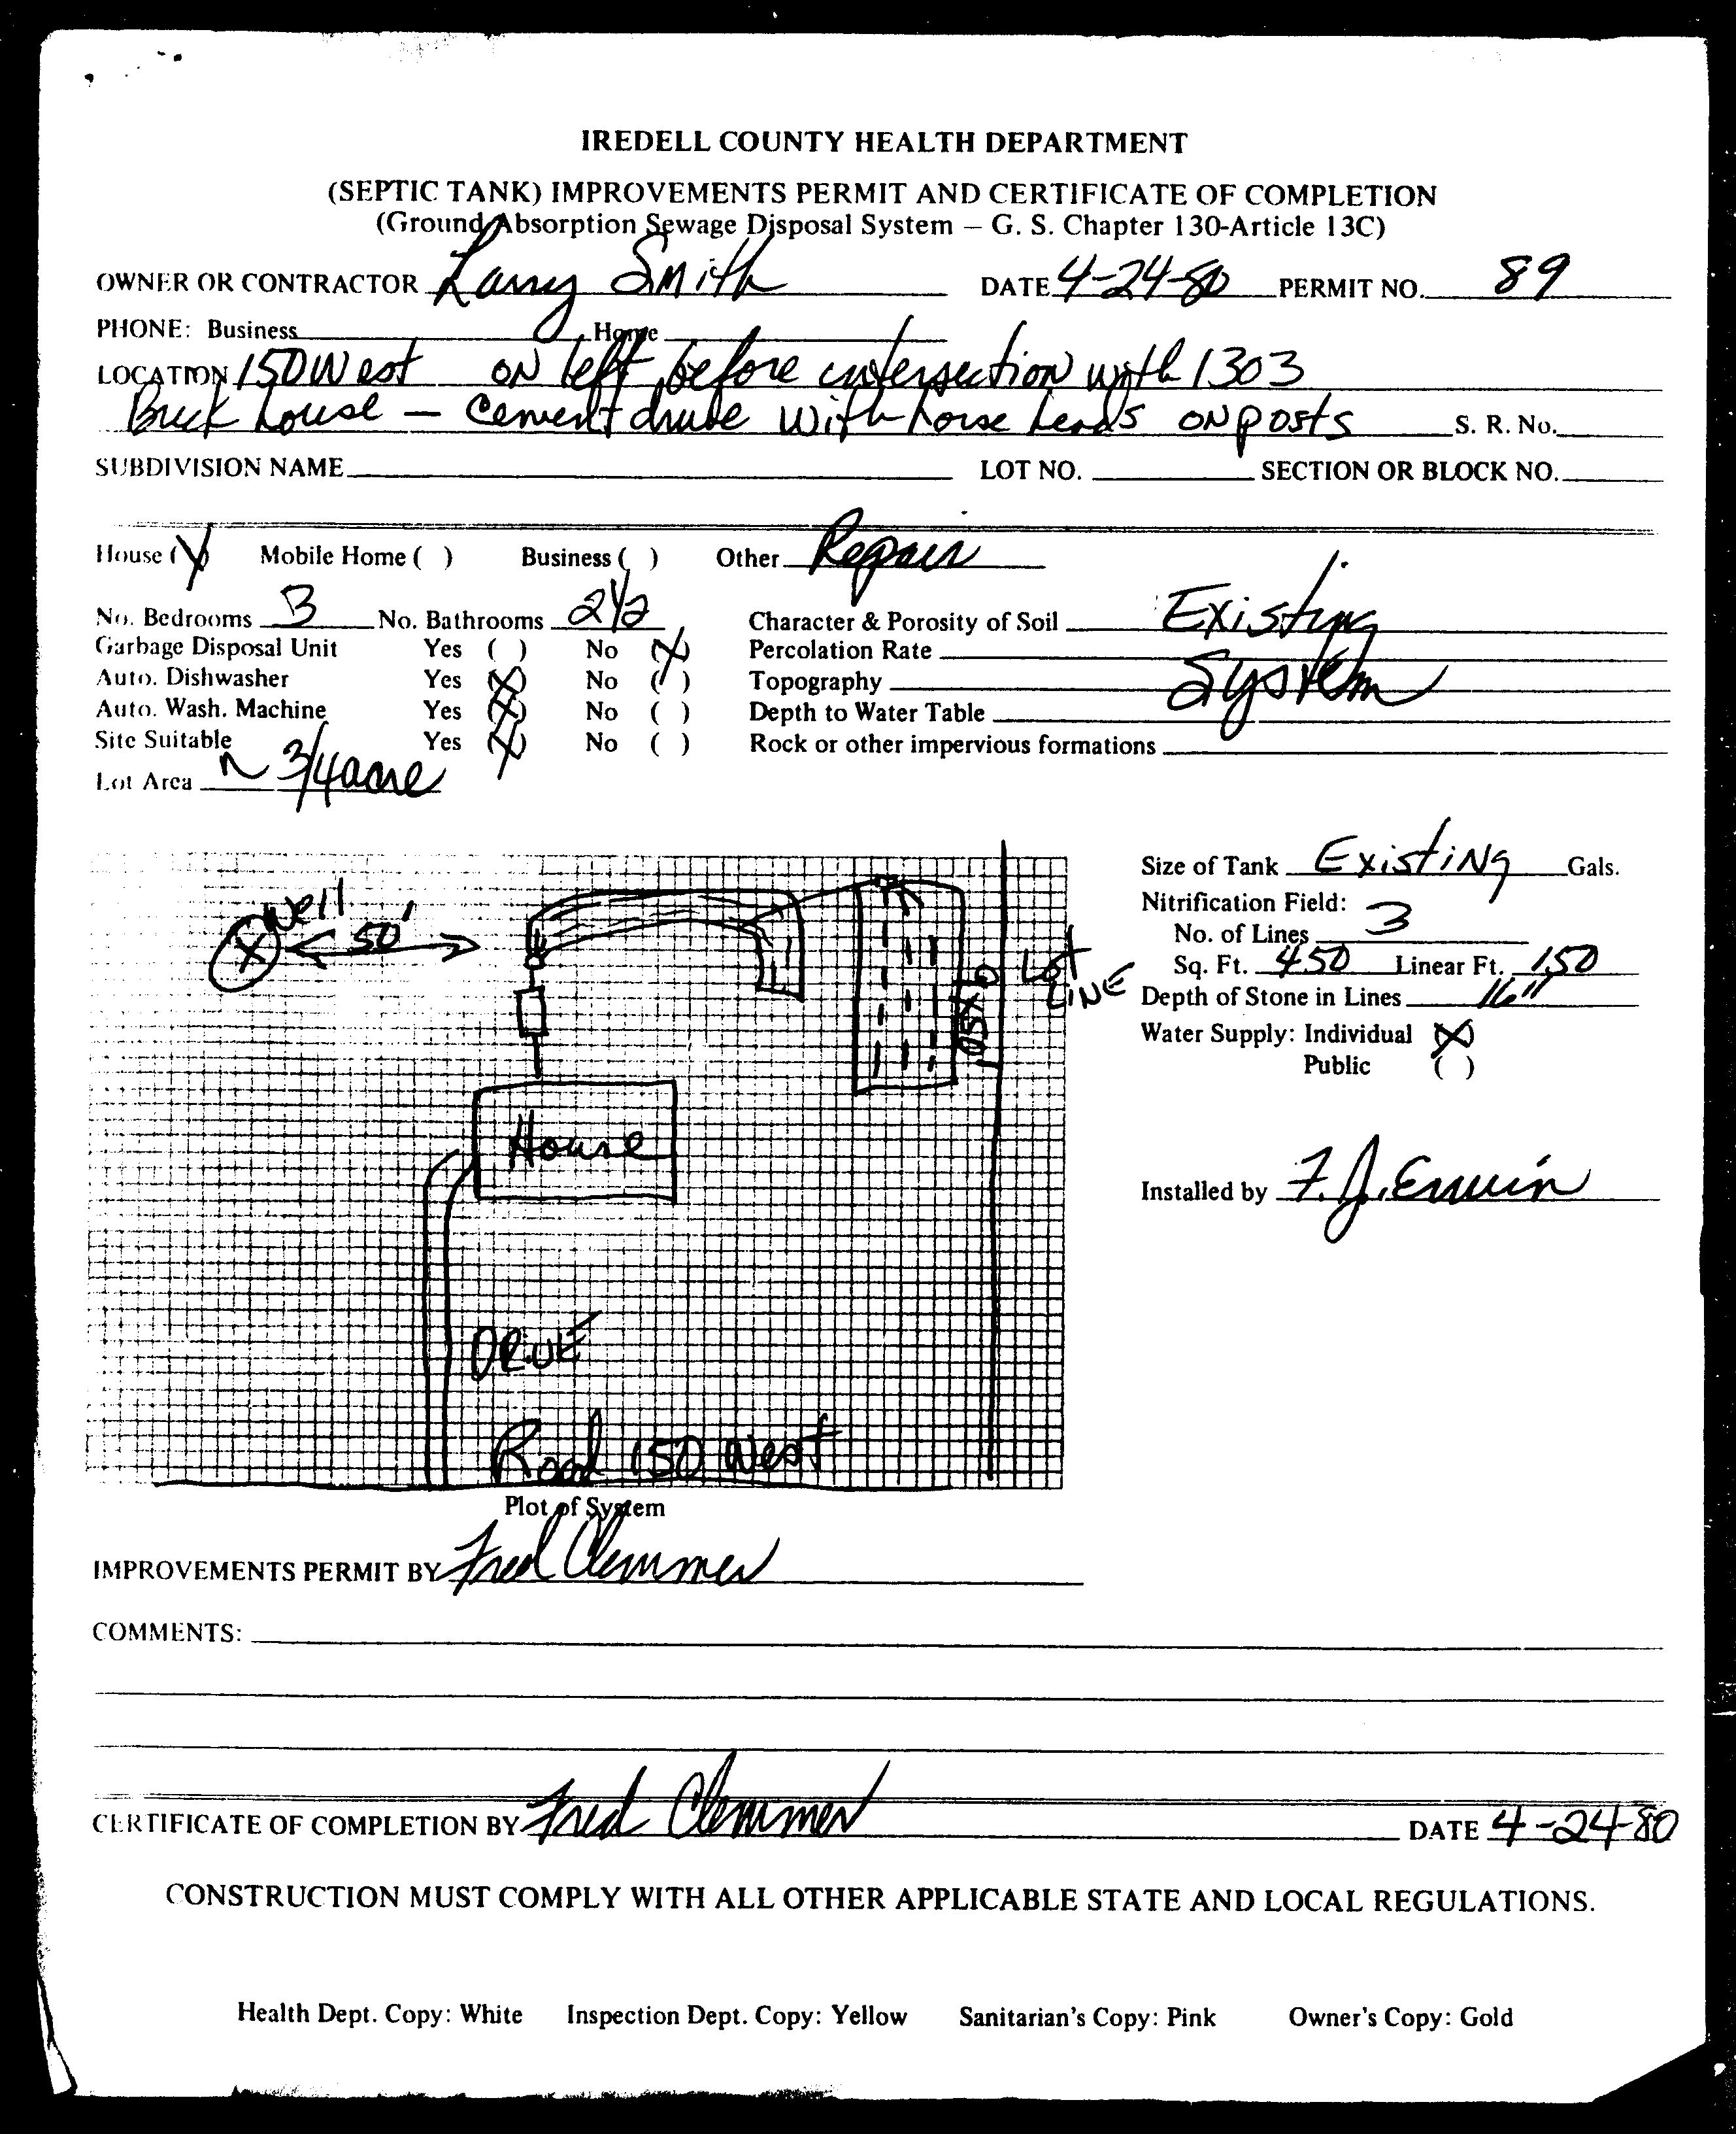 IREDELL COUNTY HEALTH DEPARTMENT
(SEPTIC TANK) IMPROVEMENTS PERMIT AND CERTIFICATE OF COMPLETION
(Ground Absorption Sewage Disposal System — G. S. Chapter 130-Article 13C)
OWNER OR CONTRACTOR Larry Smith DATE 4-24-80 PERMIT NO. 89
PHONE: Business Home
LOCATION 150 West on left before intersection with 1303
Brick house — cement drive with horse heads on posts S. R. No.
SUBDIVISION NAME LOT NO. SECTION OR BLOCK NO.
House (X) Mobile Home ( ) Business ( ) Other Repair
No. Bedrooms 3 No. Bathrooms 2 1/2 Character & Porosity of Soil Existing
Garbage Disposal Unit Yes ( ) No (X) Percolation Rate
Auto. Dishwasher Yes (X) No ( ) Topography System
Auto. Wash. Machine Yes (X) No ( ) Depth to Water Table
Site Suitable Yes (X) No ( ) Rock or other impervious formations
Lot Area ~ 3/4 acre
Well
50'
Lot
LINE
House
DRIVE
Road 150 West
Size of Tank Existing Gals.
Nitrification Field:
No. of Lines 3
Sq. Ft. 450 Linear Ft. 150
Depth of Stone in Lines 16"
Water Supply: Individual (X)
Public ( )
Installed by F. J. Erwin
Plot of System
IMPROVEMENTS PERMIT BY Fred Clemmer
COMMENTS:
CERTIFICATE OF COMPLETION BY Fred Clemmer DATE 4-24-80
CONSTRUCTION MUST COMPLY WITH ALL OTHER APPLICABLE STATE AND LOCAL REGULATIONS.
Health Dept. Copy: White Inspection Dept. Copy: Yellow Sanitarian's Copy: Pink Owner's Copy: Gold